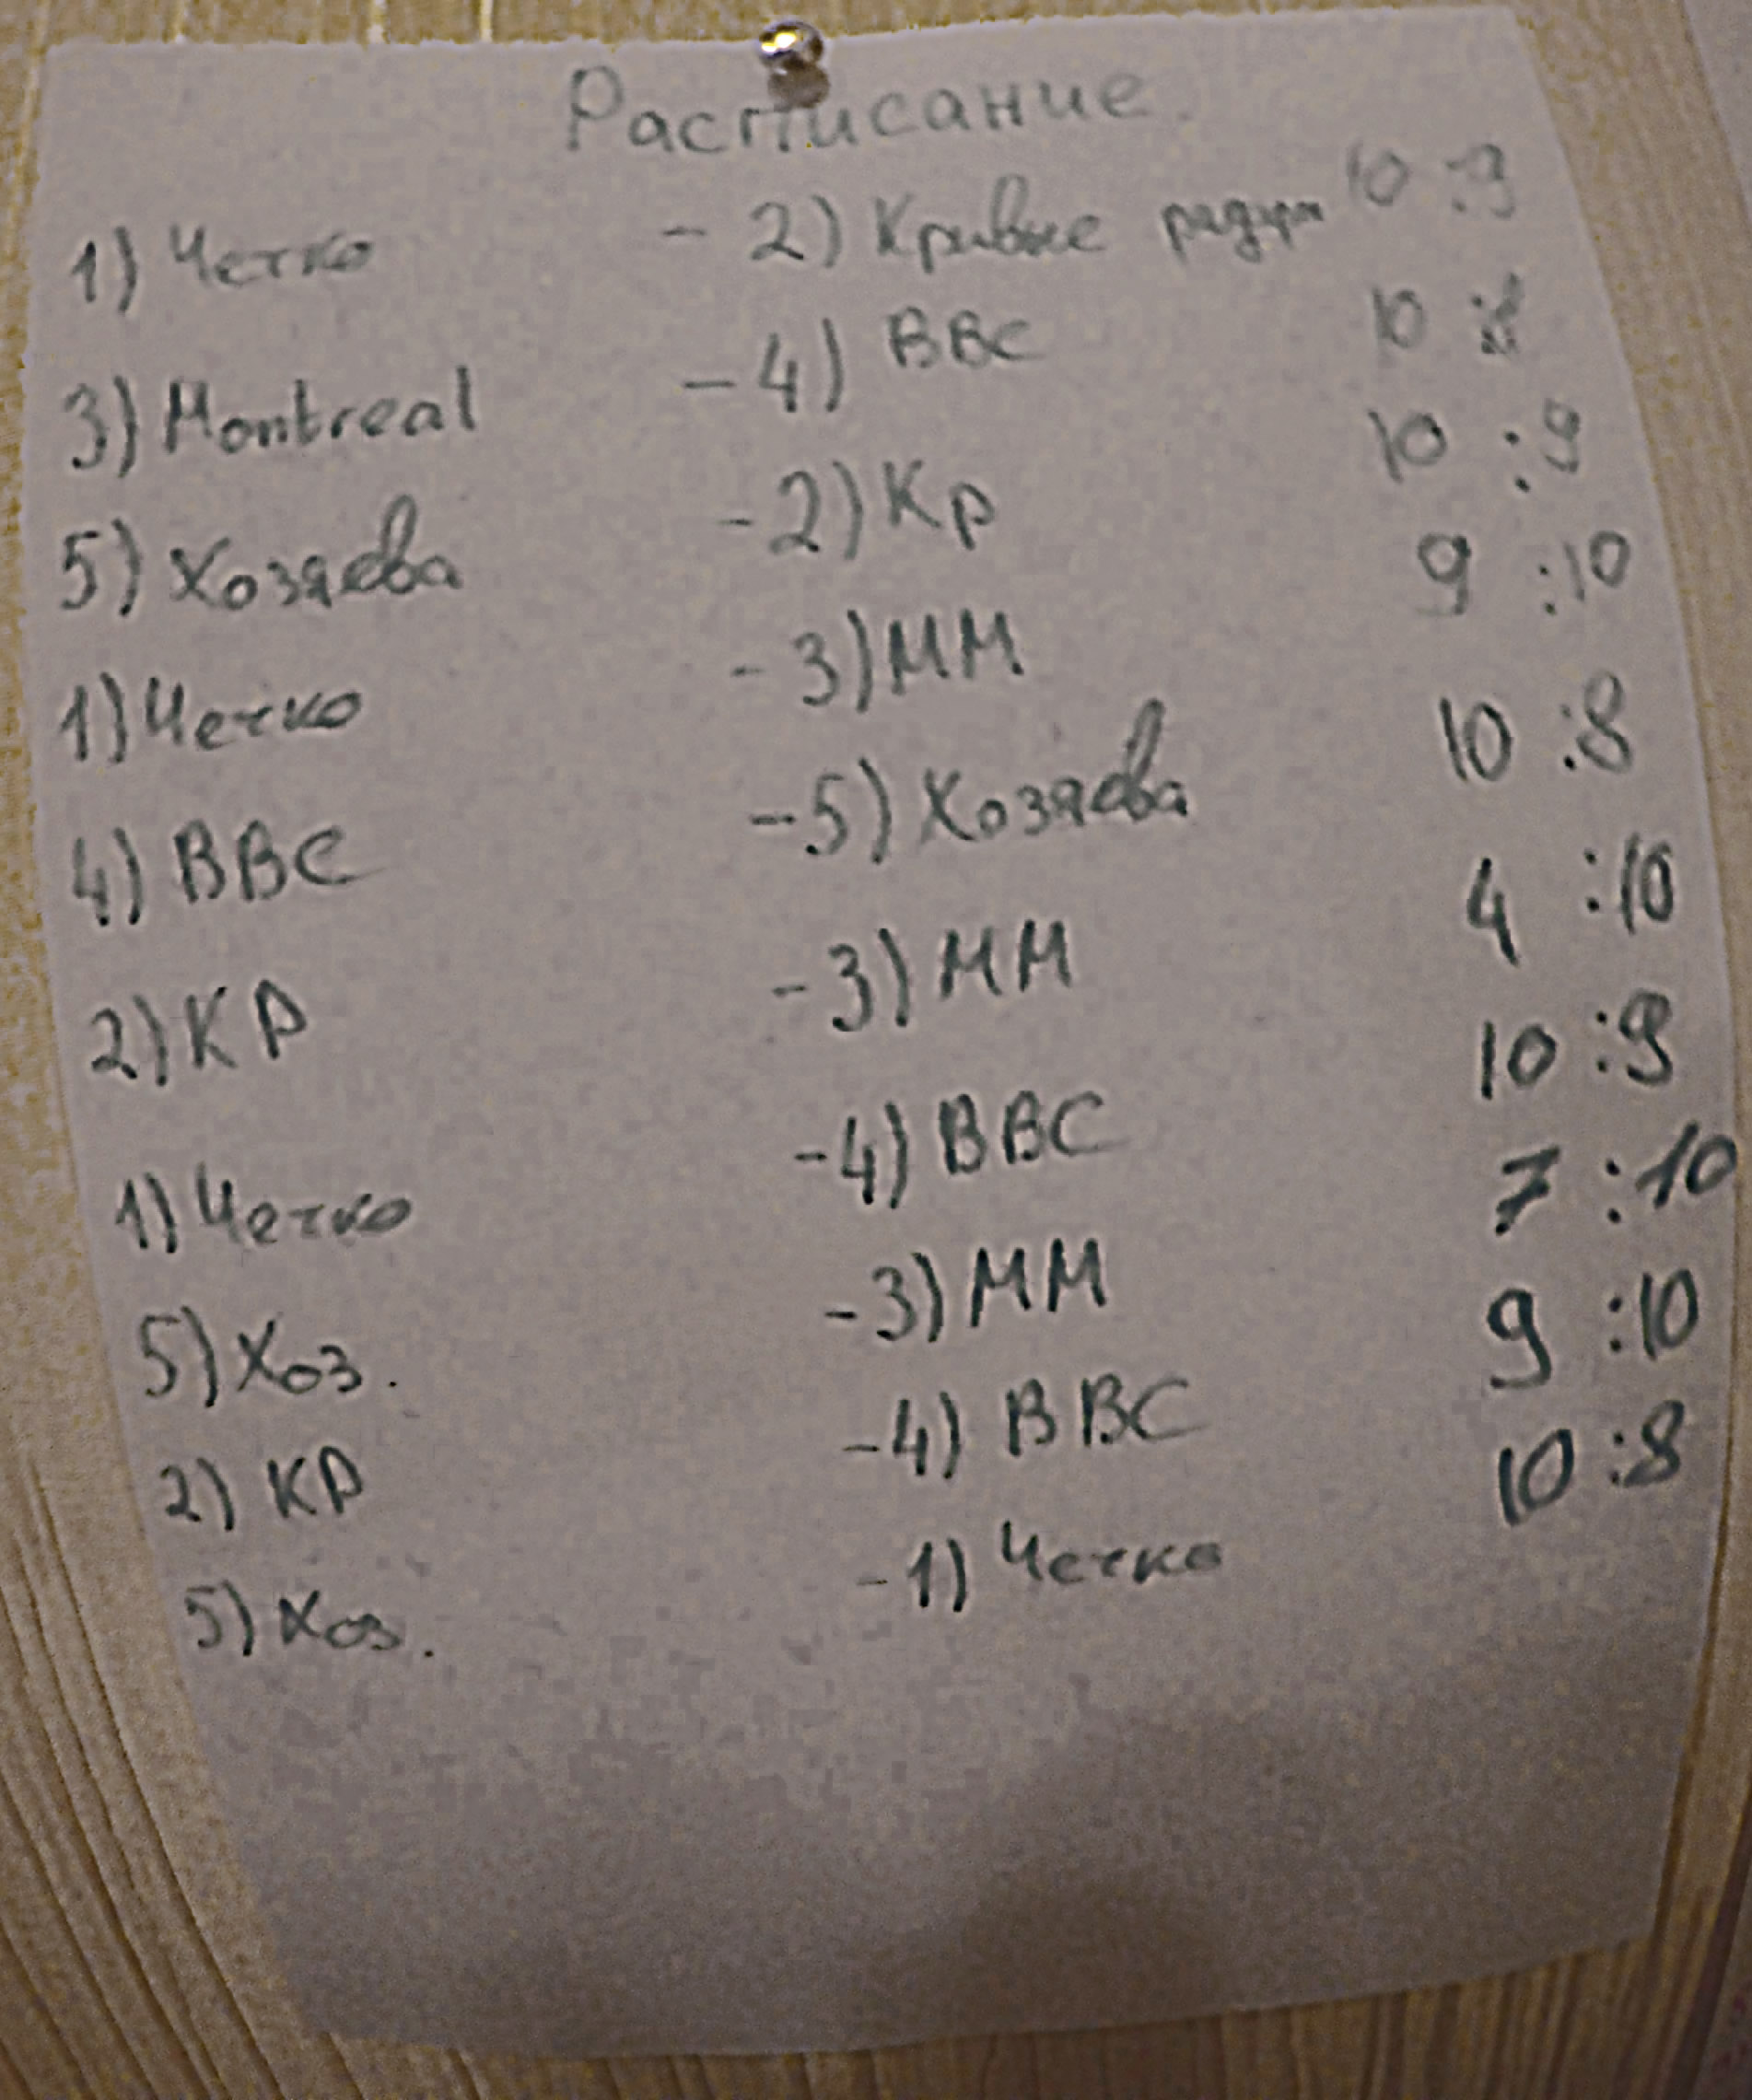 Расписание.
1) Четко - 2) Кривые рядом 10 :9
3) Montreal - 4) ВВС 10 :8
5) Хозяева - 2) Кр 10 :9
1) Четко - 3) ММ 9 :10
4) ВВС - 5) Хозяева 10 :8
2) КР - 3) ММ 4 :10
1) Четко - 4) ВВС 10 :9
5) Хоз. - 3) ММ 7 :10
2) КР - 4) ВВС 9 :10
5) Хоз. - 1) Четко 10 :8